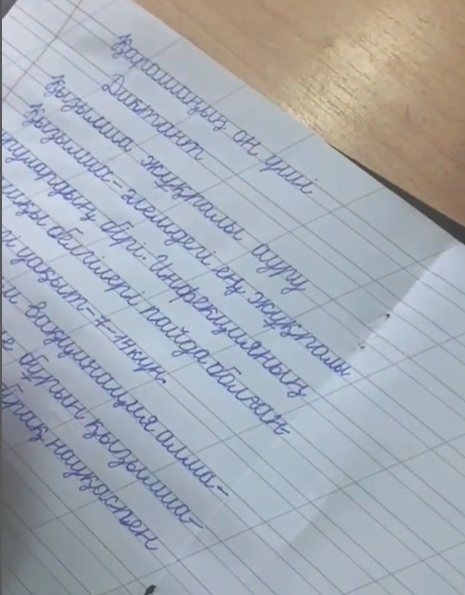 Қарашаның он үші
Диктант
Қызылша жұқпалы ауру
Қызылша - әлемдегі ең жұқпалы
аурулардың бірі. Инфекцияның
белгілері пайда болған
уақыт - 7-14 күн.
вакцинация алма-
бұрын қызылша-
бірақ науқаспен